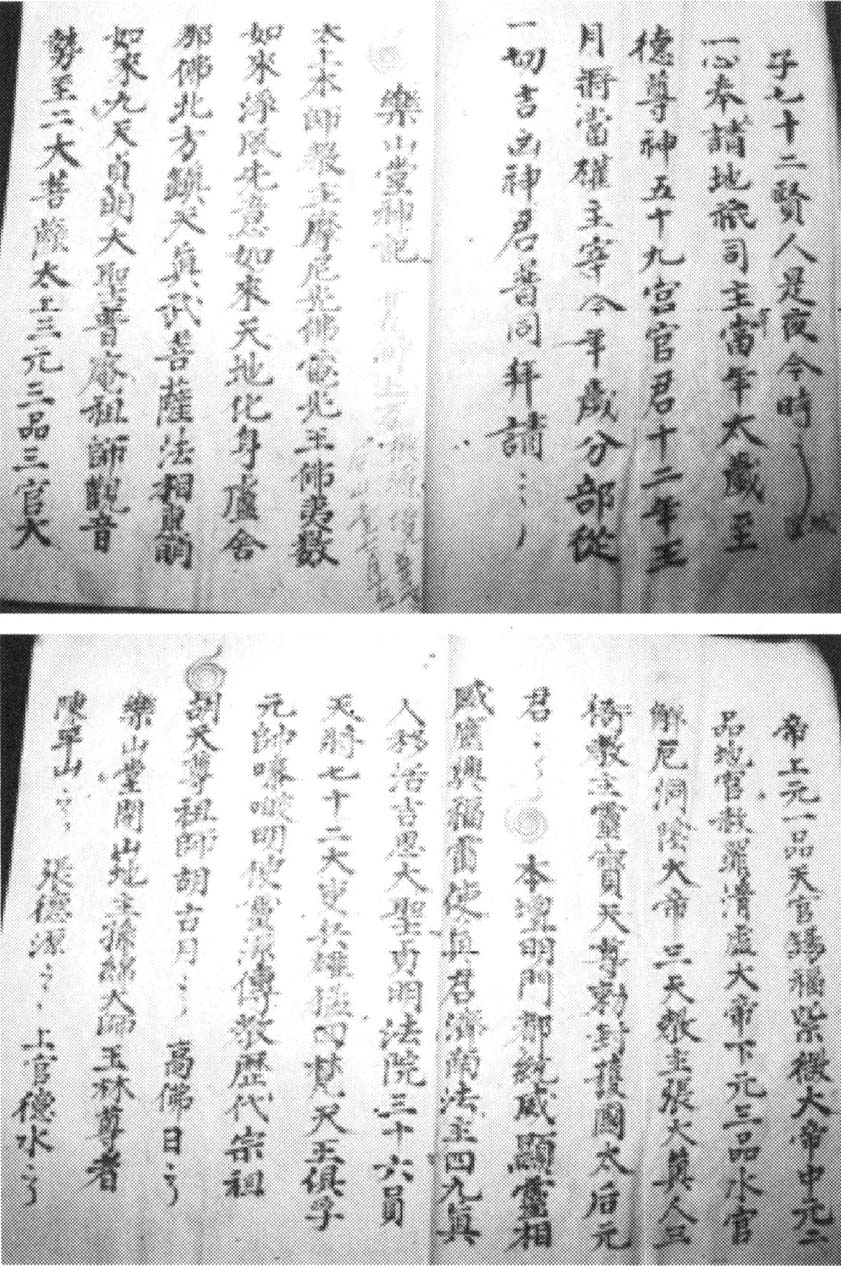 子七十二賢人是夜今時
一心奉請地祇司主當年太歲至
德尊神五十九宮官君十二年王
月將當權主宰今年歲分部從
一切吉凶神君普同拜請
樂山堂神記
太上本師教主摩尼光佛電光王佛夷數
如來淨風先意如來天地化身盧舍
那佛北方鎮天真武菩薩法相惠明
如來九天貞明大聖普庵祖師觀音
勢至二大菩薩太上三元三品三官大
帝上元一品天官錫福紫微大帝中元二
品地官赦罪清虛大帝下元三品水官
解厄洞陰大帝三天教主張大真人三
橋教主靈寶天尊勅封護國太后元
君 本壇明門都統威顯靈相
感應興福雷使真君濟南法主四九真
人移活吉思大聖貞明法院三十六員
天將七十二大吏兵雄猛四梵天王俱孚
元帥嚤𠸄明使靈源傳教歷代宗祖
胡天尊祖師胡古月 高佛日
樂山堂開山地主孫綿大師玉林尊者
陳平山 張德源 上官德水